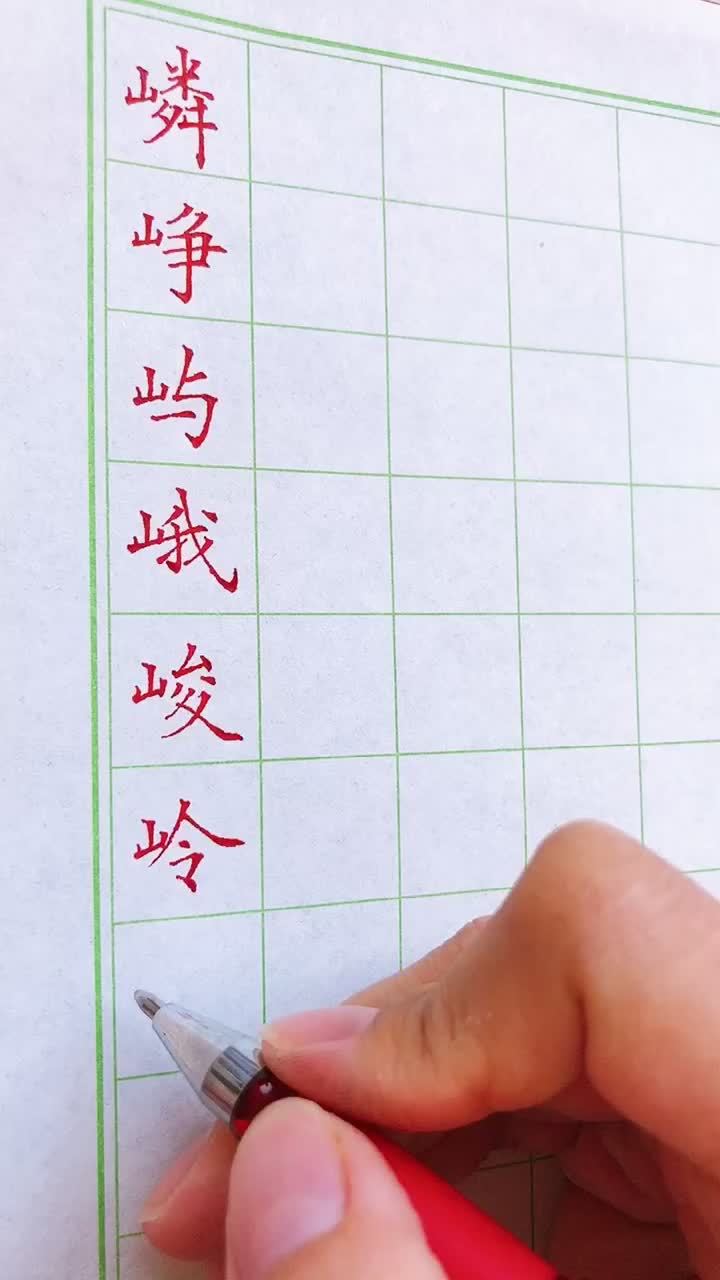 嶙
峥
屿
峨
峻
岭